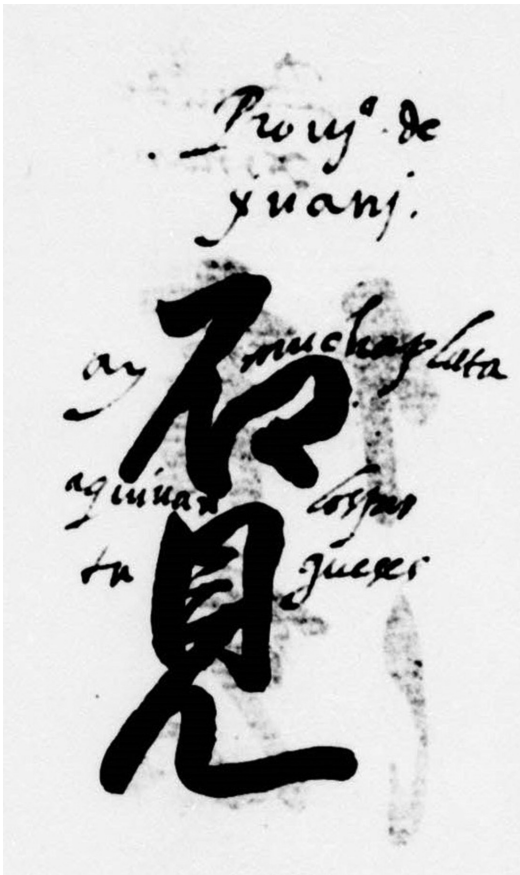 Provjª. de
xuanj.
石見
ay mucha plata
aqui van los por
tu gueses